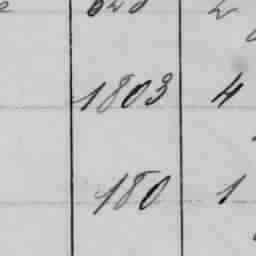 1803 4
180 1